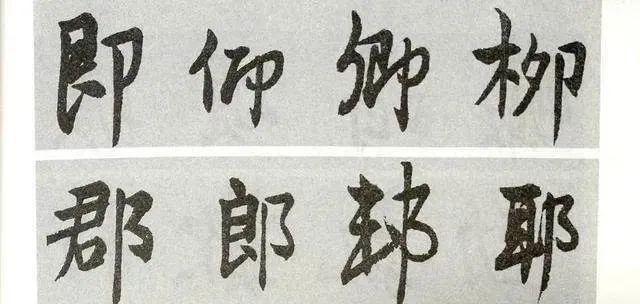 即仰卿柳
郡郎耶